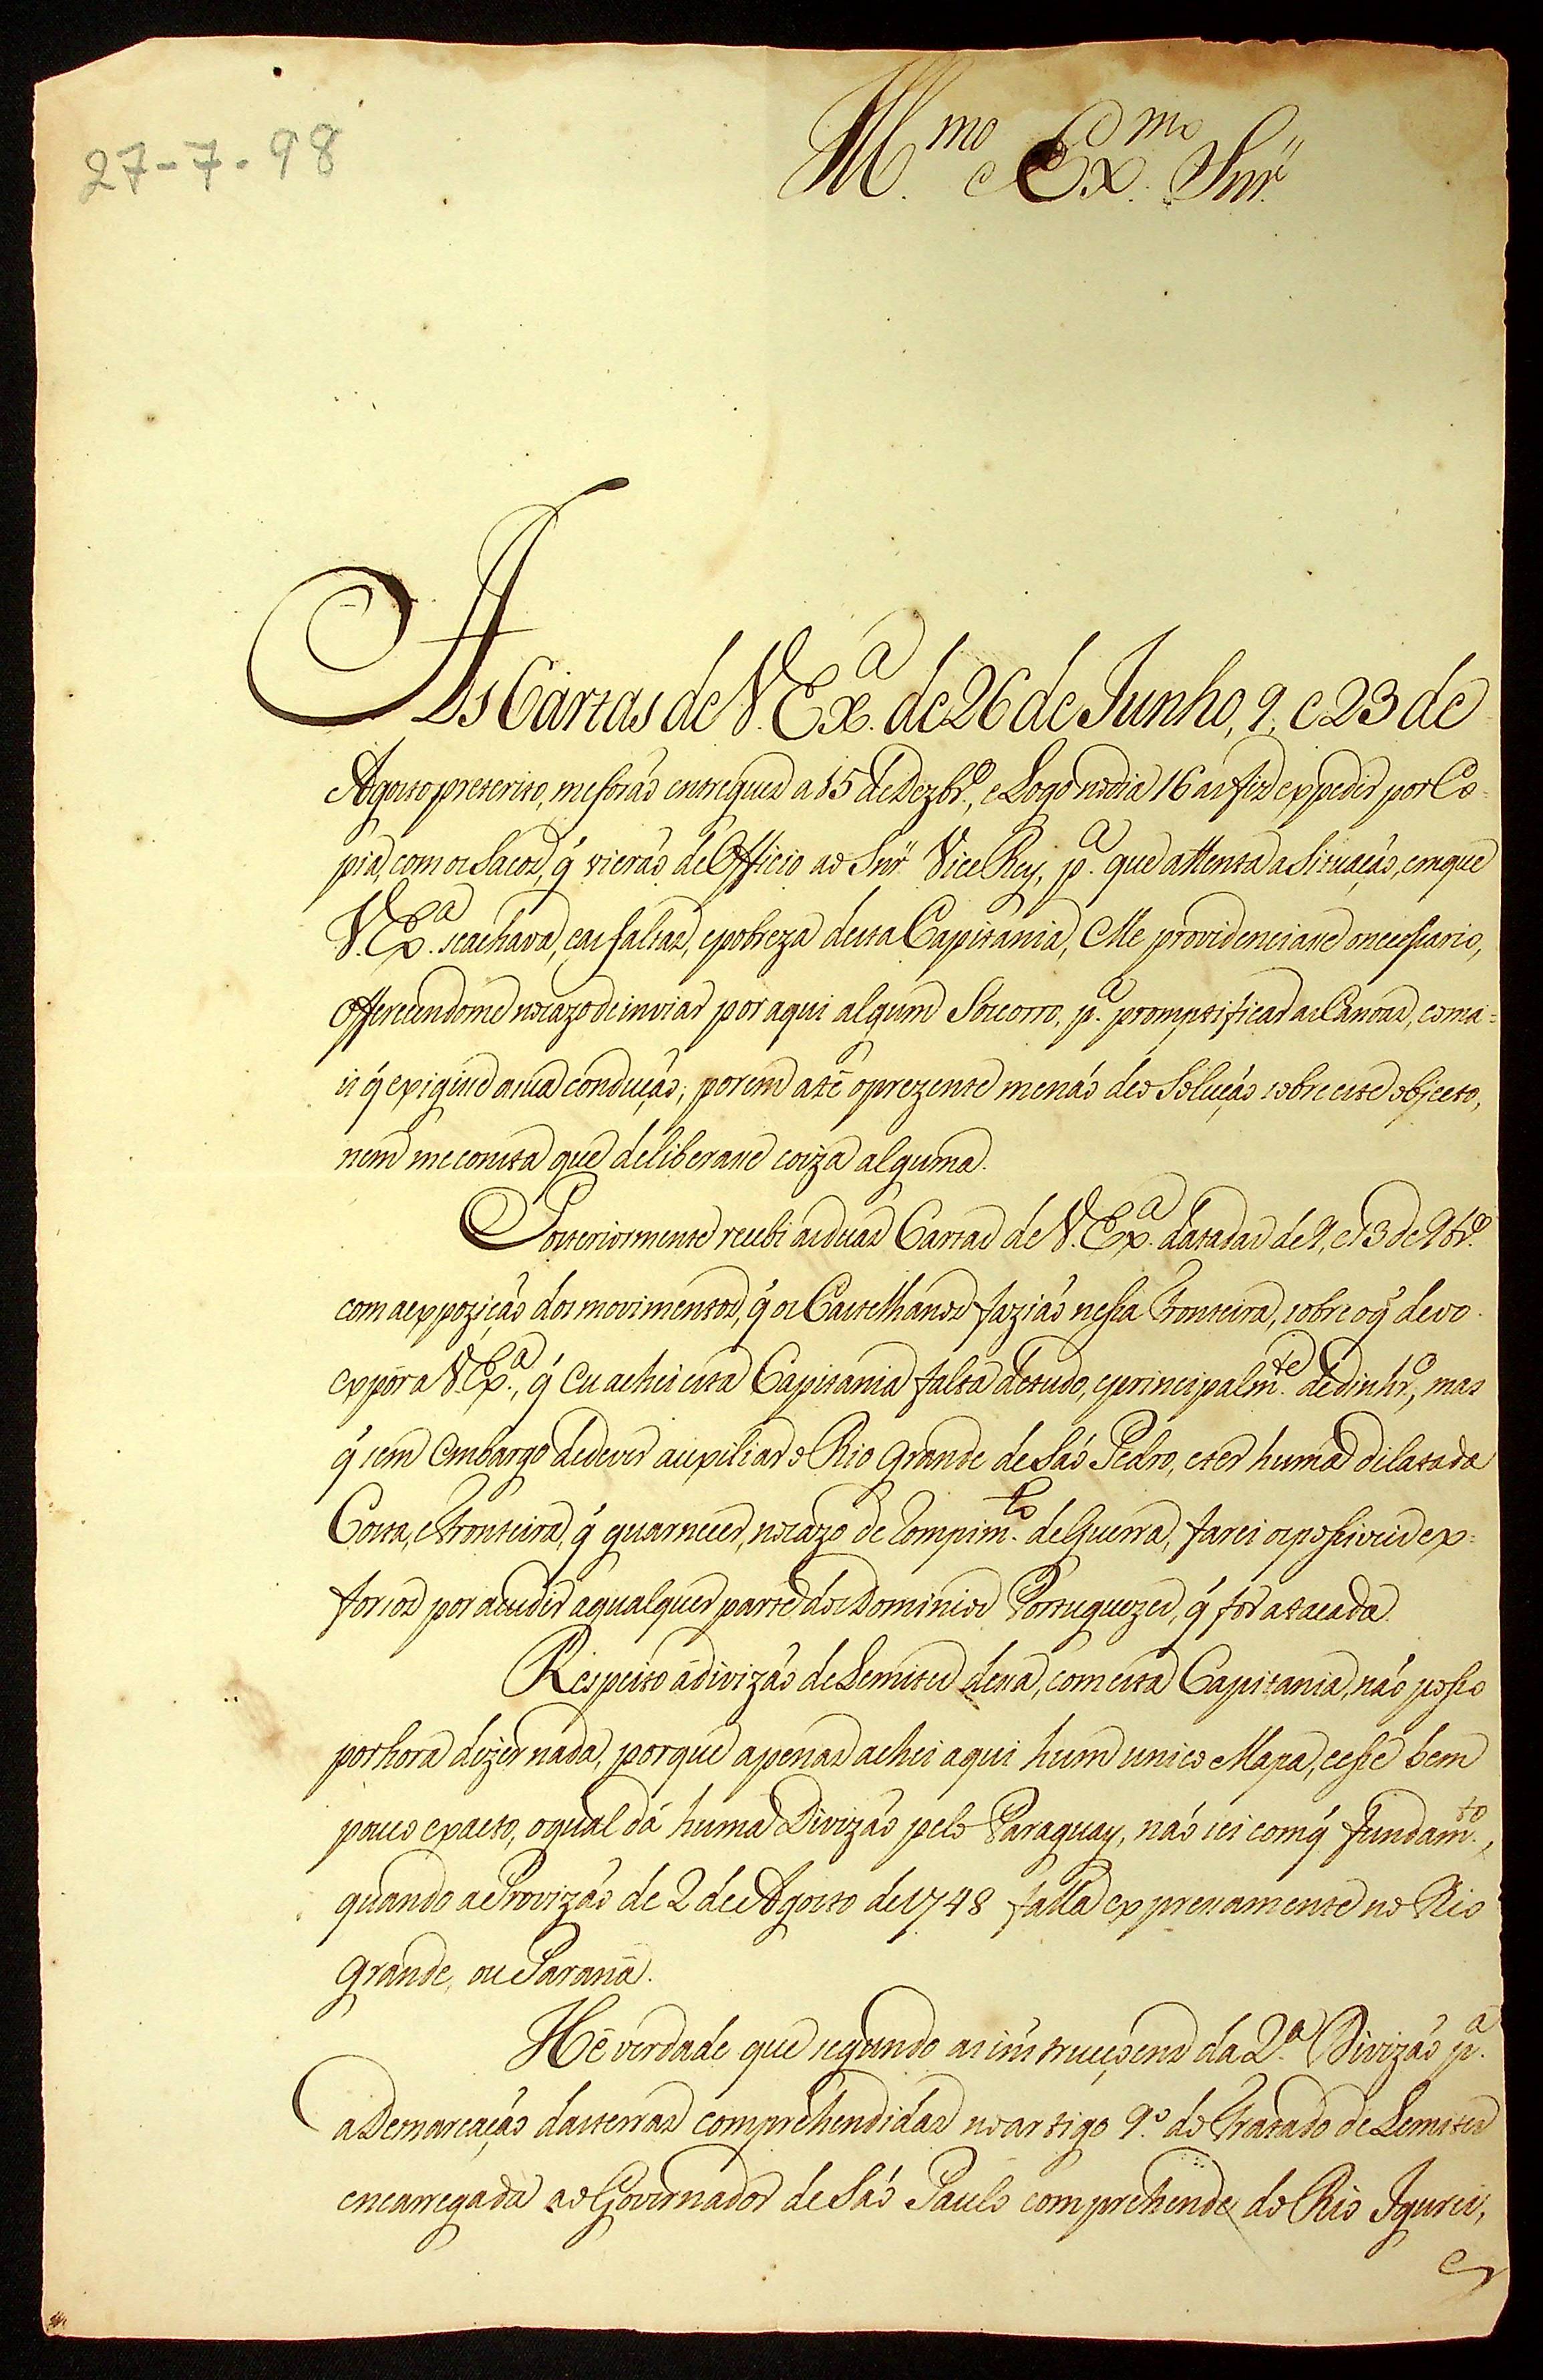 27-7-98
Ill.mo e Ex.mo Snr.
As Cartas de V. Ex.a de 26 de Junho, 9, e 23 de
Agosto preterito, me forão entregues a 15 de Dezbr.o, e Logo no dia 16 as fiz expedir por Co-
pia, com os Sacos, q̃ vierão de Officio ao Snr. Vice Rey, p.a que attenta a Situação, em que
V. Ex.a se achava, e as faltas, e pobreza desta Capitania, Me providenciasse o necessario,
offerecendome no cazo de inviar por aqui algum Socorro, p.a promptificar as Canoas, e o ma-
is q̃ exigisse a sua condução; porem até o prezente me não deo Solução sobre este objecto,
nem me consta que deliberasse coiza alguma.
Posteriormente recebi as duas Cartas de V. Ex.a datadas de 9, e 13 de 9br.o
com a expozição dos movimentos, q̃ os Castelhanos fazião nessa Fronteira, sobre o q̃ devo
expôr a V. Ex.a, q̃ Eu achei esta Capitania falta de tudo, e principalm.te de dinhr.o, mas
q̃ sem embargo de dever auxiliar o Rio grande de São Pedro, e ter huma dilatada
Costa, e Fronteira, q̃ guarnecer, no cazo de Rompim.to de Guerra, farei os possiveis ex-
forsos por acudir a qualquer parte dos Dominios Portuguezes, q̃ for atacada.
Respeito á divizão de Lemites dessa, com esta Capitania, não posso
por hora dizer nada, porque apenas achei aqui hum unico Mapa, e esse bem
pouco exacto, o qual dá huma Divizão pelo Paraguay, não sei com q̃ fundam.to,
quando a Provizão de 2 de Agosto de 1748 falla expressamente no Rio
grande, ou Paraná.
Hé verdade que segundo as instrucsoens da 2.a Divizão p.a
a Demarcação das terras comprehendidas no artigo 9.o do Tratado de Lemites
encarregada ao Governador de São Paulo comprehende do Rio Igurei,
e